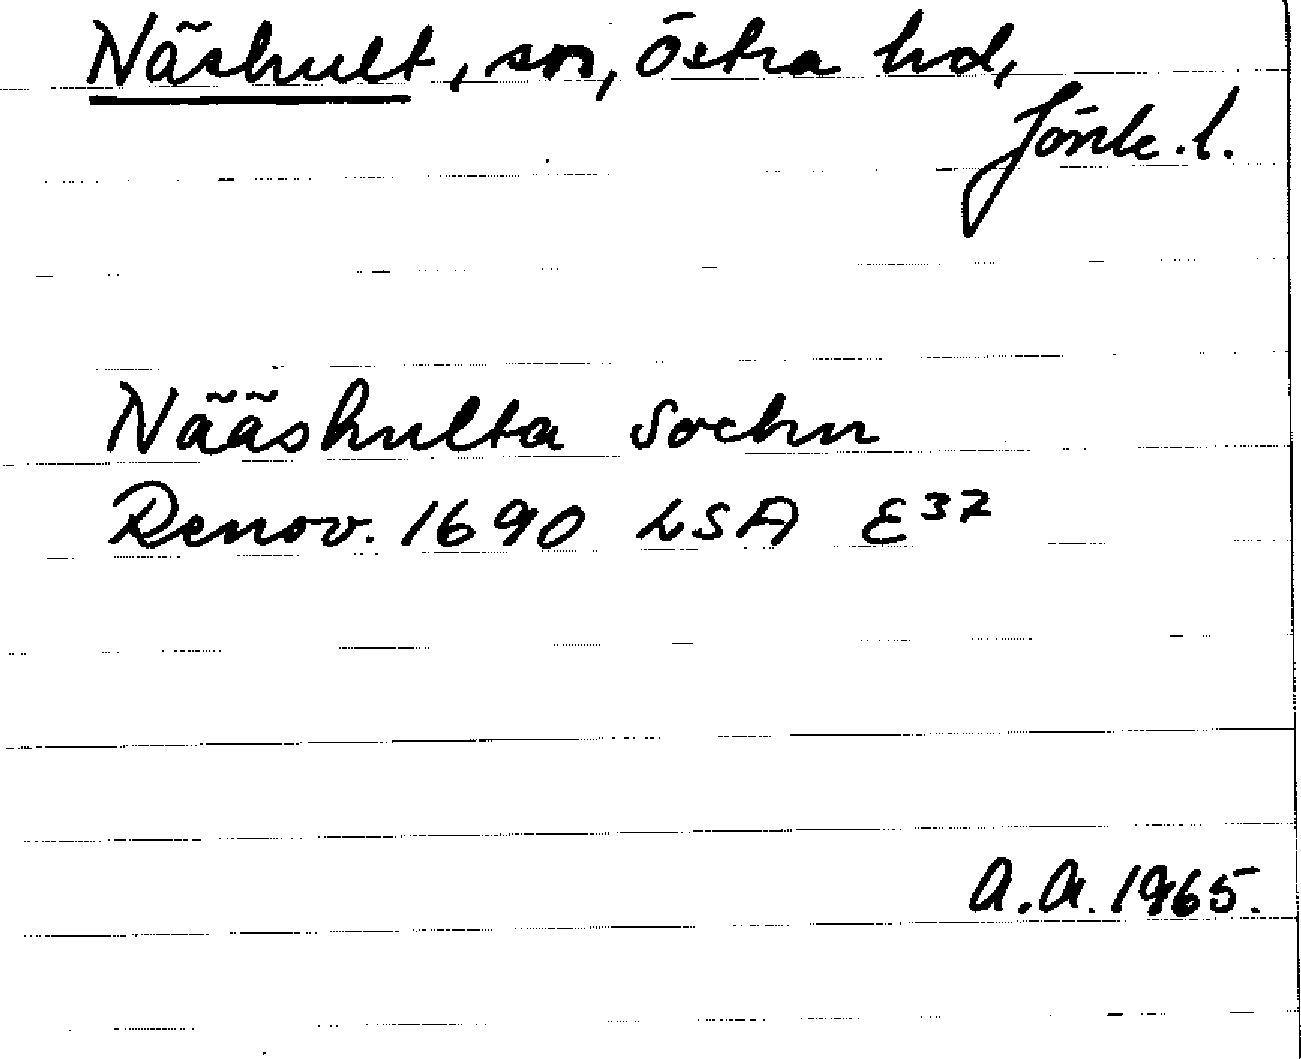 Näshult, sn, Östra hd,
Jönk. l.
Nääshulta Sochn
Renov. 1690 LSA E 37
A.A. 1965.